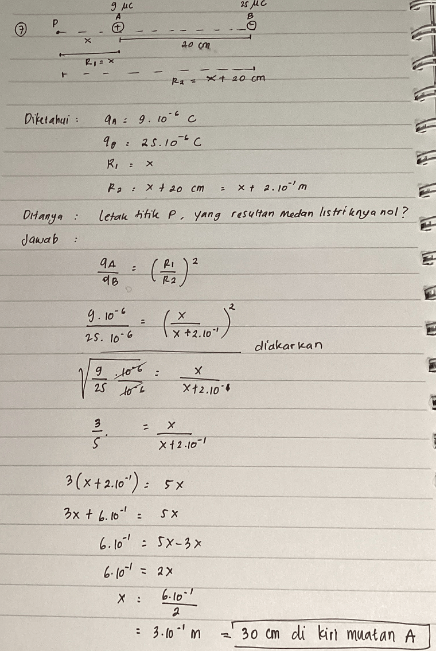 9 μC 25 μC
⑦ P A B
⊕ ⊖
x 20 cm
R1 = x
R2 = x + 20 cm
Diketahui : qA = 9 . 10⁻⁶ C
qB = 25 . 10⁻⁶ C
R1 = x
R2 = x + 20 cm = x + 2 . 10⁻¹ m
Ditanya : letak titik P, yang resultan medan listriknya nol?
Jawab :
qA / qB = (R1 / R2)²
9 . 10⁻⁶ / 25 . 10⁻⁶ = (x / x + 2 . 10⁻¹)²
diakarkan
√(9 / 25 . 10⁻⁶ / 10⁻⁶) = x / x + 2 . 10⁻¹
3 / 5 . = x / x + 2 . 10⁻¹
3 (x + 2 . 10⁻¹) = 5x
3x + 6 . 10⁻¹ = 5x
6 . 10⁻¹ = 5x - 3x
6 . 10⁻¹ = 2x
x = 6 . 10⁻¹ / 2
= 3 . 10⁻¹ m = 30 cm di kiri muatan A